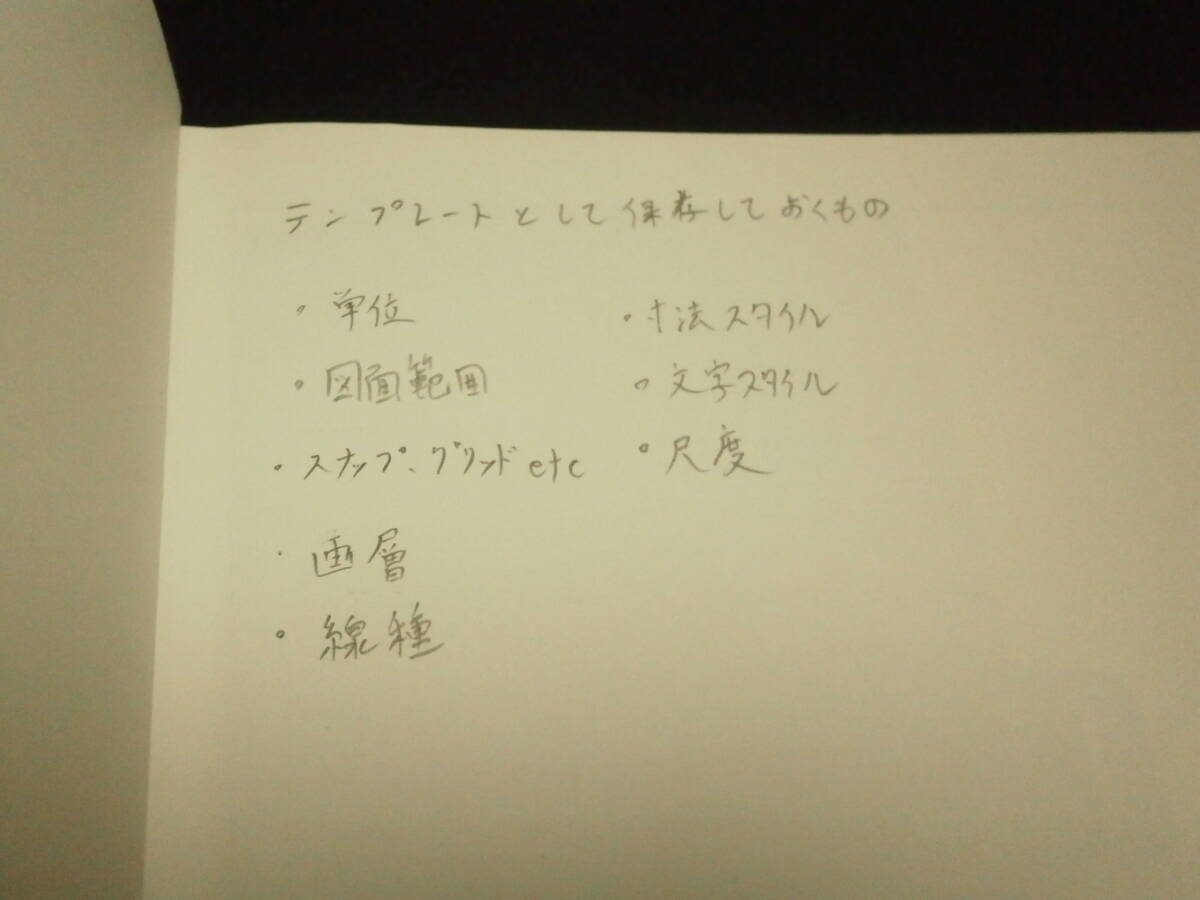 テンプレートとして保存しておくもの
・単位
・図面範囲
・スナップ、グリッドetc
・画層
・線種
・寸法スタイル
・文字スタイル
・尺度